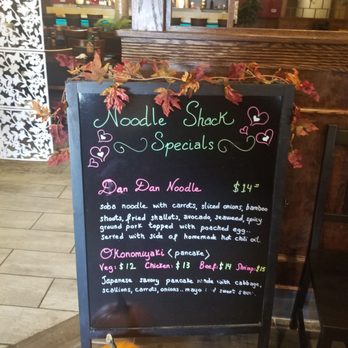 Noodle Shack
Specials
Dan Dan Noodle $14
soba noodle with carrots, sliced onions, bamboo
shoots, fried shallots, avocado, seaweed, spicy
ground pork topped with poached egg..
served with side of homemade hot chili oil.
Okonomiyaki (pancake)
Veg: $12 Chicken: $13 Beef: $14 Shrimp: $15
Japanese savory pancake made with cabbage,
scallions, carrots, onions.. mayo